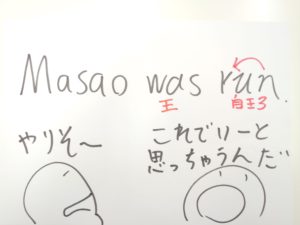 Masao was run.
王
やりそ～
これでいーと
思っちゃうんだ